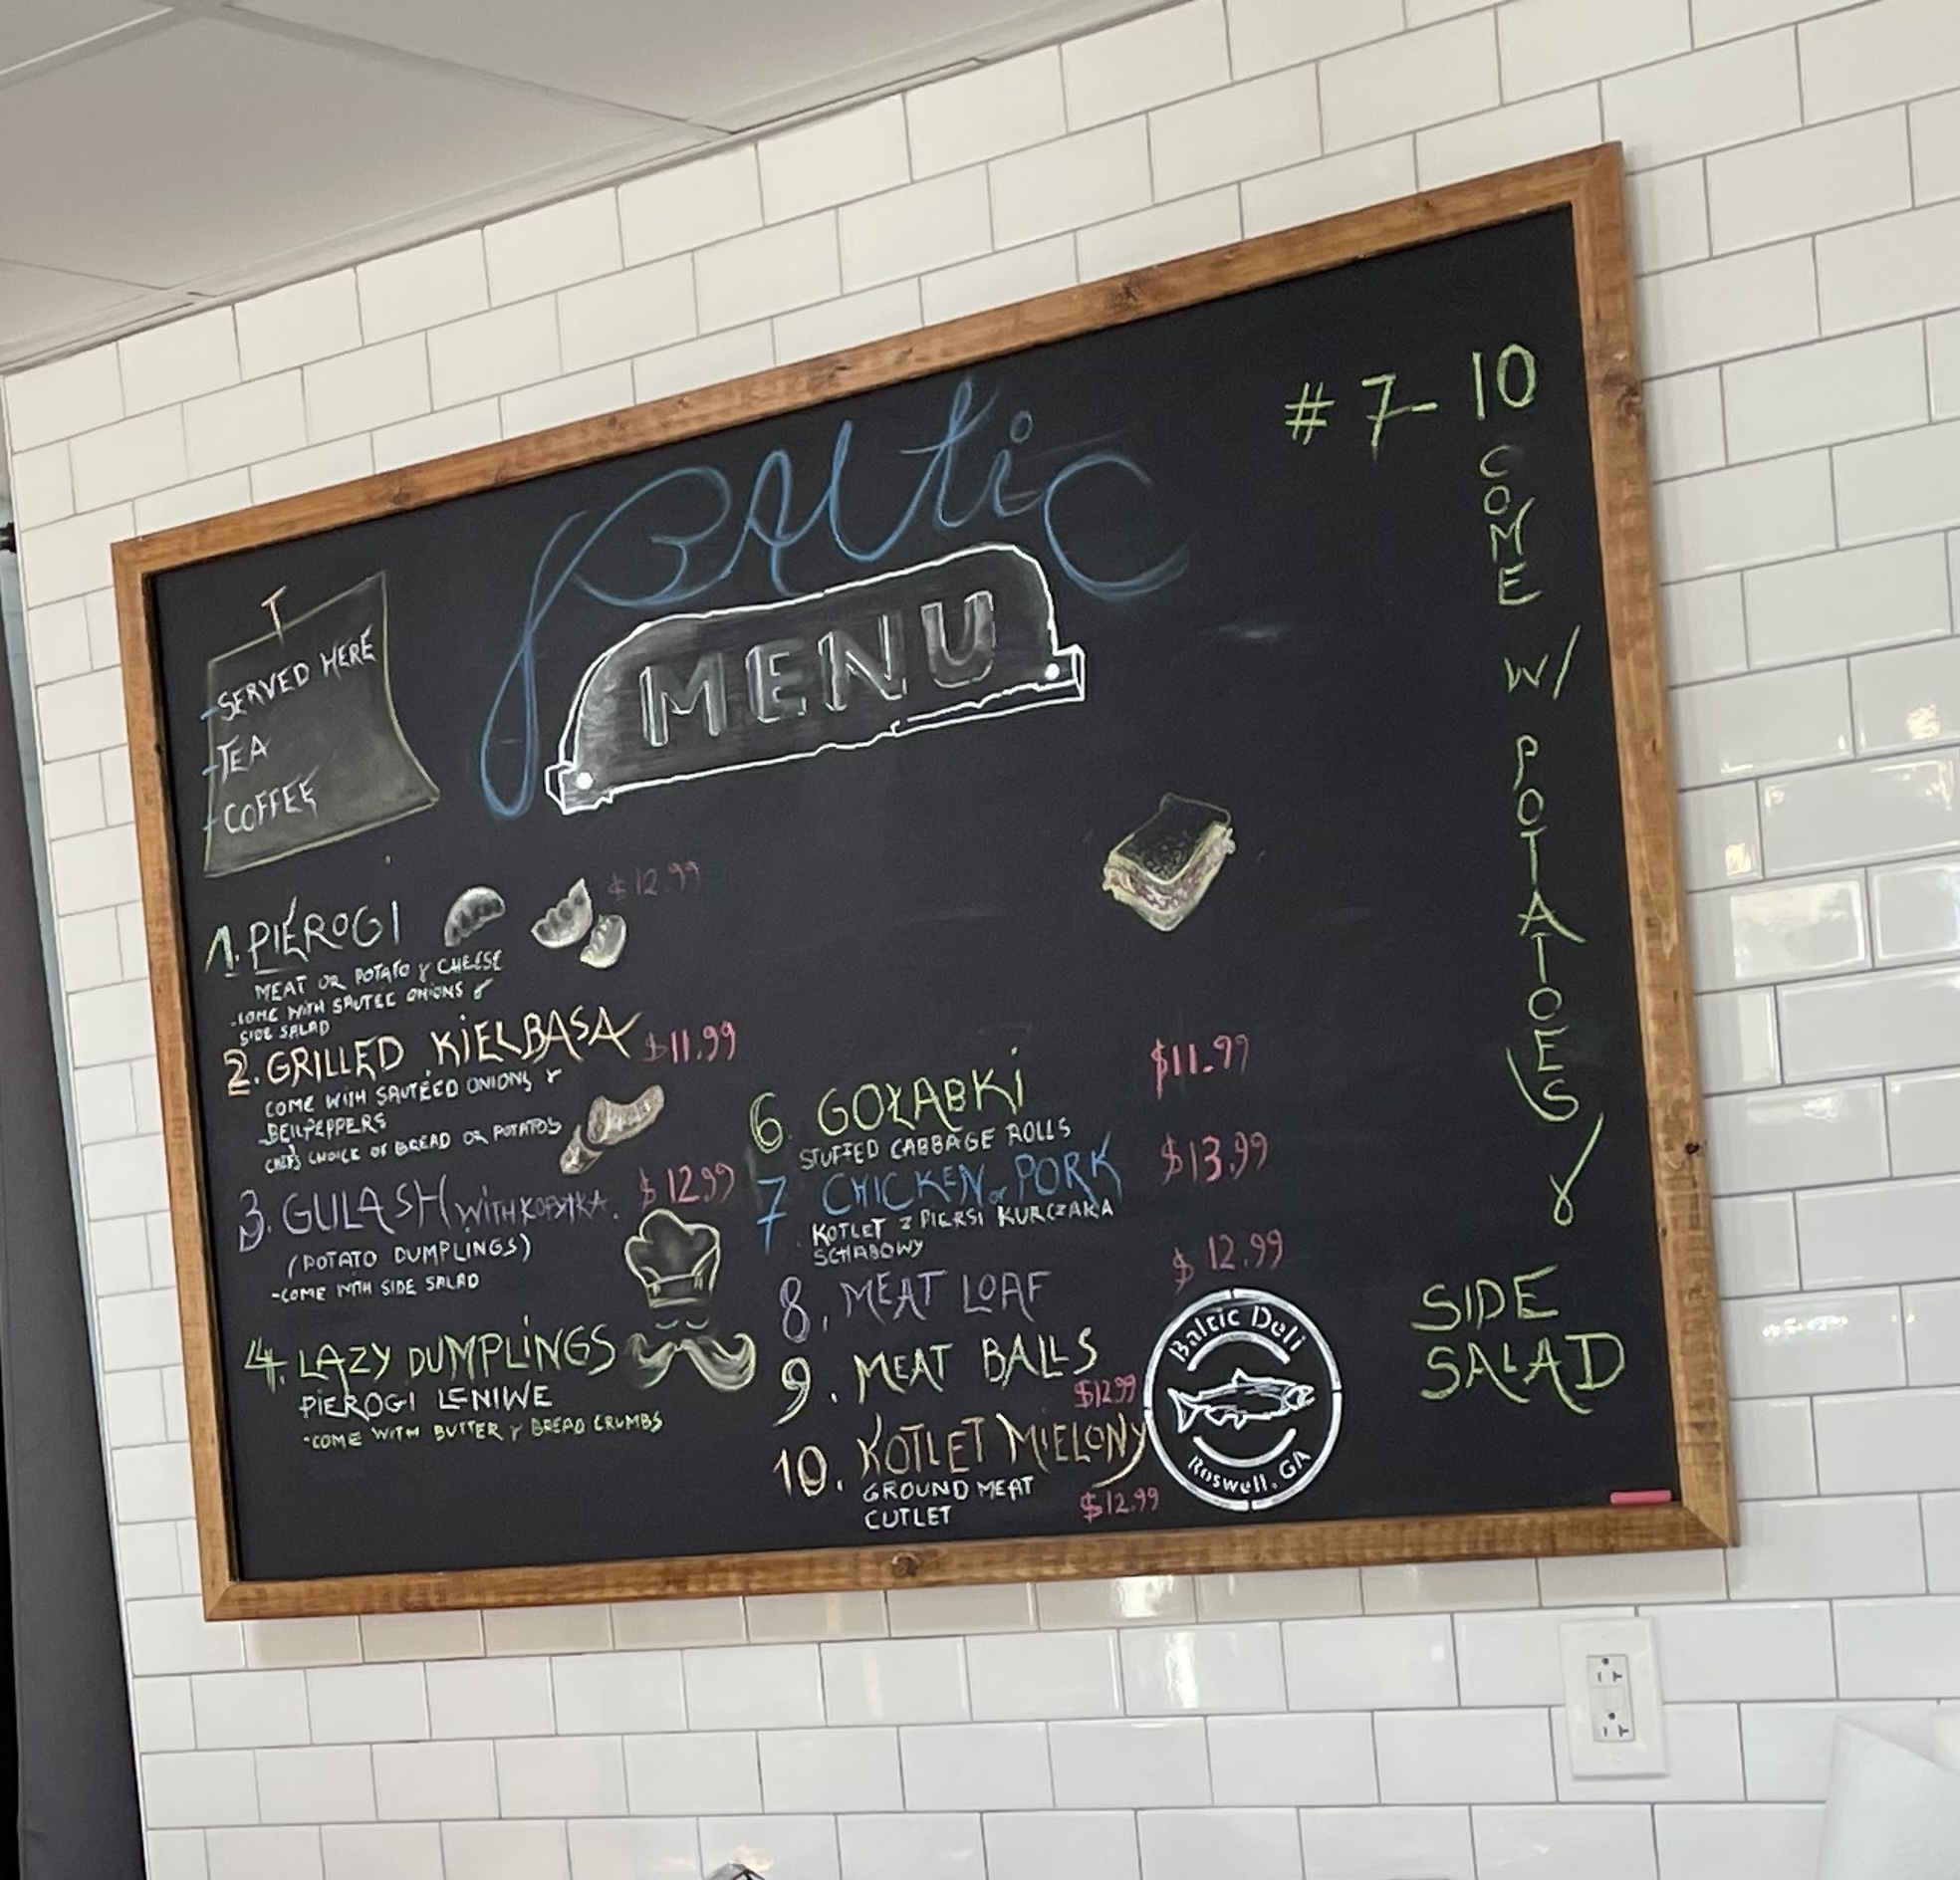 Baltic
MENU
SERVED HERE
- TEA
- COFFEE
1. PIEROGI $12.99
MEAT OR POTATO & CHEESE
- COME WITH SAUTEE ONIONS &
SIDE SALAD
2. GRILLED KIELBASA $11.99
COME WITH SAUTÉED ONIONS &
BELLPEPPERS
CHEF'S CHOICE OF BREAD OR POTATOS
3. GULASH WITH KOPYTKA. $12.99
(POTATO DUMPLINGS)
- COME WITH SIDE SALAD
4. LAZY DUMPLINGS
PIEROGI LENIWE
- COME WITH BUTTER & BREAD CRUMBS
6. GOŁABKI $11.99
STUFFED CABBAGE ROLLS
7 CHICKEN or PORK $13.99
KOTLET Z PIERSI KURCZAKA
SCHABOWY
8. MEAT LOAF $12.99
9. MEAT BALLS
$12.99
10. KOTLET MIELONY
GROUND MEAT
CUTLET $12.99
Baltic Deli
Roswell, GA
#7-10
COME
W/
POTATOES
&
SIDE
SALAD